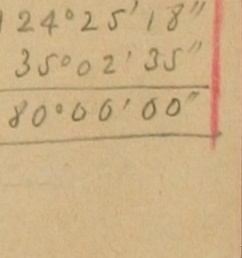 124°25'18"
35°02'35"
80°00'00"